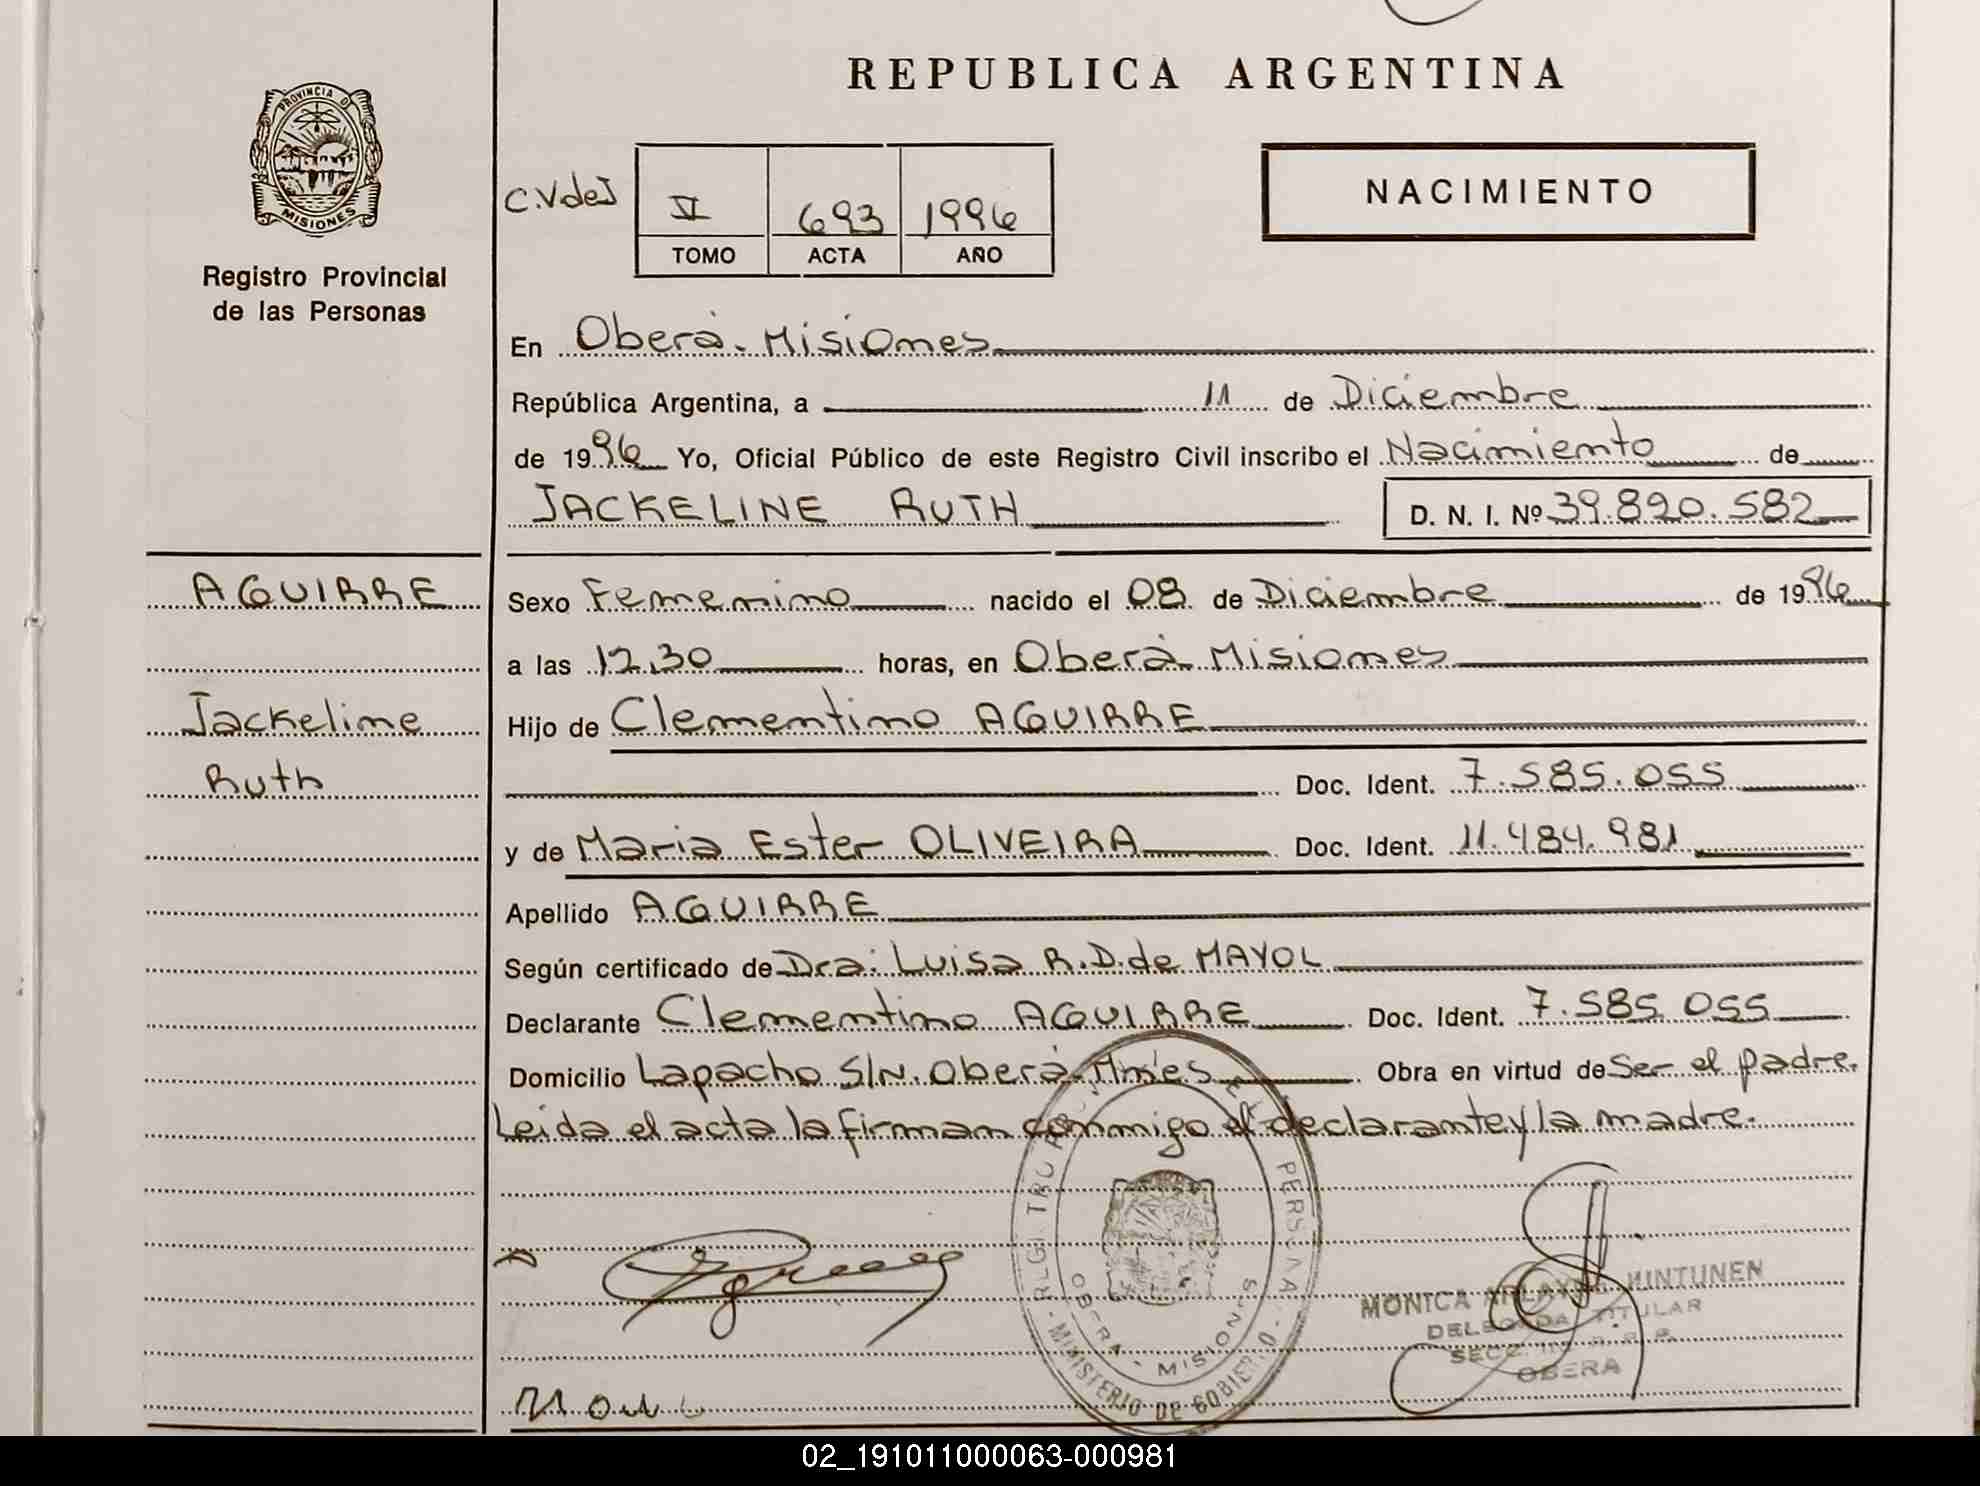 REPUBLICA ARGENTINA
PROVINCIA D
MISIONES
Registro Provincial
de las Personas
C.VdeJ
VI 693 1996
TOMO ACTA AÑO
NACIMIENTO
En Oberá - Misiones
República Argentina, a 11 de Diciembre
de 1996 Yo, Oficial Público de este Registro Civil inscribo el Nacimiento de
JACKELINE RUTH D. N. I. Nº 39.820.582
AGUIRRE
Jackeline
Ruth
Sexo Femenino nacido el 08 de Diciembre de 1996
a las 12,30 horas, en Oberá Misiones
Hijo de Clementino AGUIRRE
Doc. Ident. 7.585.055
y de Maria Ester OLIVEIRA Doc. Ident. 11.484.981
Apellido AGUIRRE
Según certificado de Dra: Luisa R.D. de MAYOL
Declarante Clementino AGUIRRE Doc. Ident. 7.585.055
Domicilio Lapacho S/N. Oberá - Mnes Obra en virtud de Ser el padre.
Leida el acta la firman conmigo el declarante y la madre.
MINISTERIO DE GOBIERNO
OBERA - MISIONES
MONICA HINTUNEN
DELEGADA TITULAR
OBERA
02_191011000063-000981